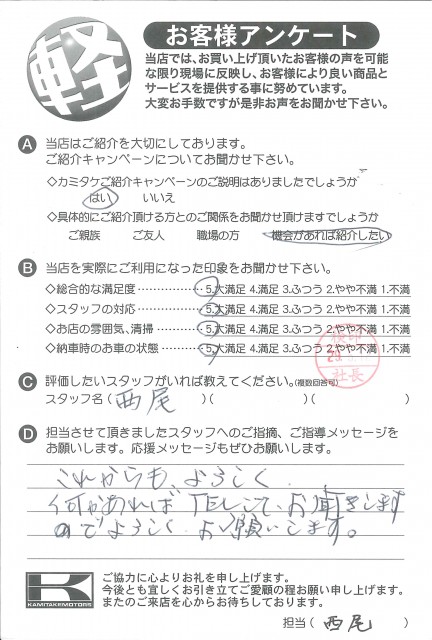 軽
お客様アンケート
当店では、お買い上げ頂いたお客様の声を可能
な限り現場に反映し、お客様により良い商品と
サービスを提供する事に努めています。
大変お手数ですが是非お声をお聞かせ下さい。
A 当店はご紹介を大切にしております。
ご紹介キャンペーンについてお聞かせ下さい。
◇カミタケご紹介キャンペーンのご説明はありましたでしょうか
はい いいえ
◇具体的にご紹介頂ける方とのご関係をお聞かせ頂けますでしょうか
ご親族 ご友人 職場の方 機会があれば紹介したい
B 当店を実際にご利用になった印象をお聞かせ下さい。
◇総合的な満足度……………5.大満足 4.満足 3.ふつう 2.やや不満 1.不満
◇スタッフの対応……………5.大満足 4.満足 3.ふつう 2.やや不満 1.不満
◇お店の雰囲気、清掃………5.大満足 4.満足 3.ふつう 2.やや不満 1.不満
◇納車時のお車の状態………5.大満足 4.満足 3.ふつう 2.やや不満 1.不満
社長
C 評価したいスタッフがいれば教えてください。(複数回答可)
スタッフ名(西尾)( )( )
D 担当させて頂きましたスタッフへのご指摘、ご指導メッセージを
お願いします。応援メッセージもぜひお願いします。
これからも、よろしく
何かあれば TELして、お聞きします
のでよろしく お願いします。
K
KAMITAKEMOTORS
ご協力に心よりお礼を申し上げます。
今後とも宜しくお引き立てご愛顧の程お願い申し上げます。
またのご来店を心からお待ちしております。
担当(西尾)